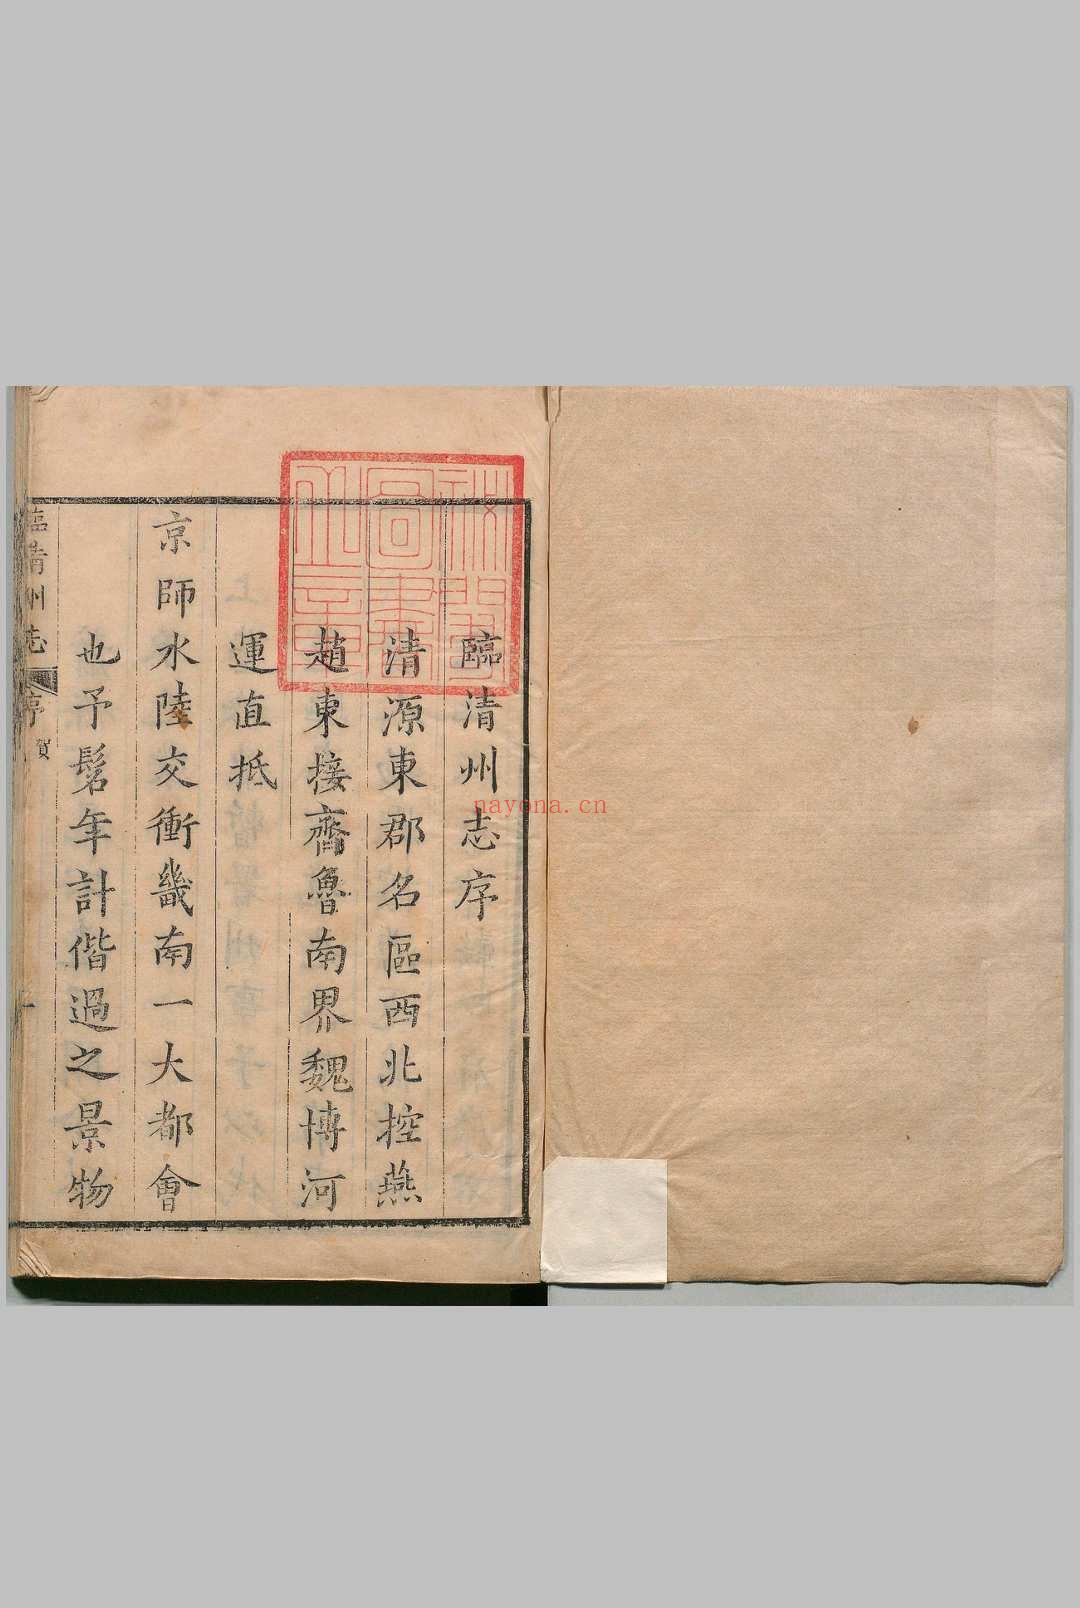 臨清州志序
清源東郡名區西北控燕
趙東接齊魯南界魏博河
運直抵
京師水陸交衝畿南一大都會
也予髫年計偕過之景物
臨清州志
序
賀
一
nayona.cn